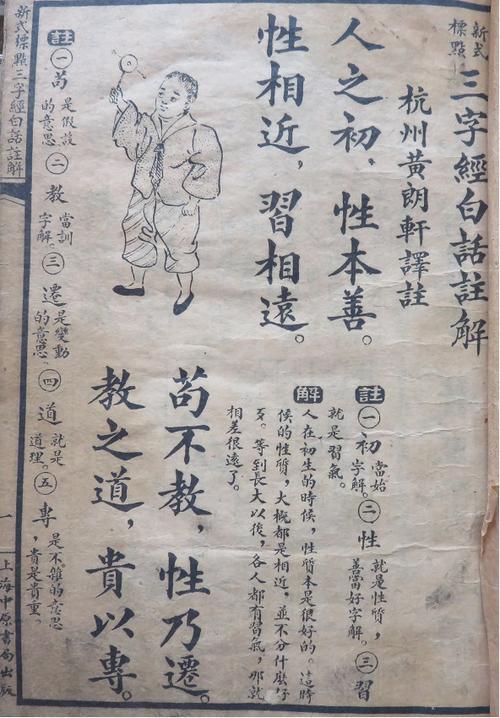 新式標點 三字經白話註解
杭州黃朗軒譯註
人之初，性本善。
性相近，習相遠。
註 ㊀初 當始字解。 ㊁性 就是性質，善當好字解。 ㊂習
就是習氣。
解 人在初生的時候，性質本是很好的。這時
候的性質，大概都是相近，並不分什麼好
歹。等到長大以後，各人都有習氣，那就
相差很遠了。
苟不教，性乃遷。
教之道，貴以專。
註 ㊀苟 是假設的意思 ㊁教 當訓字解。 ㊂遷 是變動的意思 ㊃道 就是道理。 ㊄專 是不雜的意思，貴是貴重。
新式標點三字經白話註解
一
上海中原書局出版